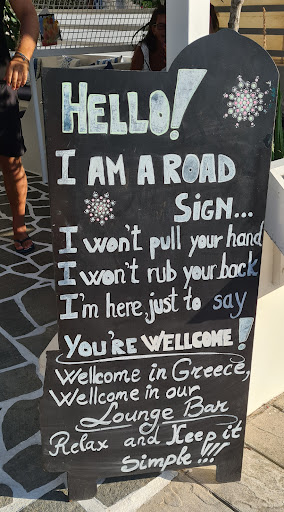 HELLO!
I AM A ROAD
SIGN...
I won't pull your hand
I won't rub your back
I'm here just to say
YOU'RE WELLCOME!
Wellcome in Greece,
Wellcome in our
Lounge Bar
Relax and Keep it
simple!!!